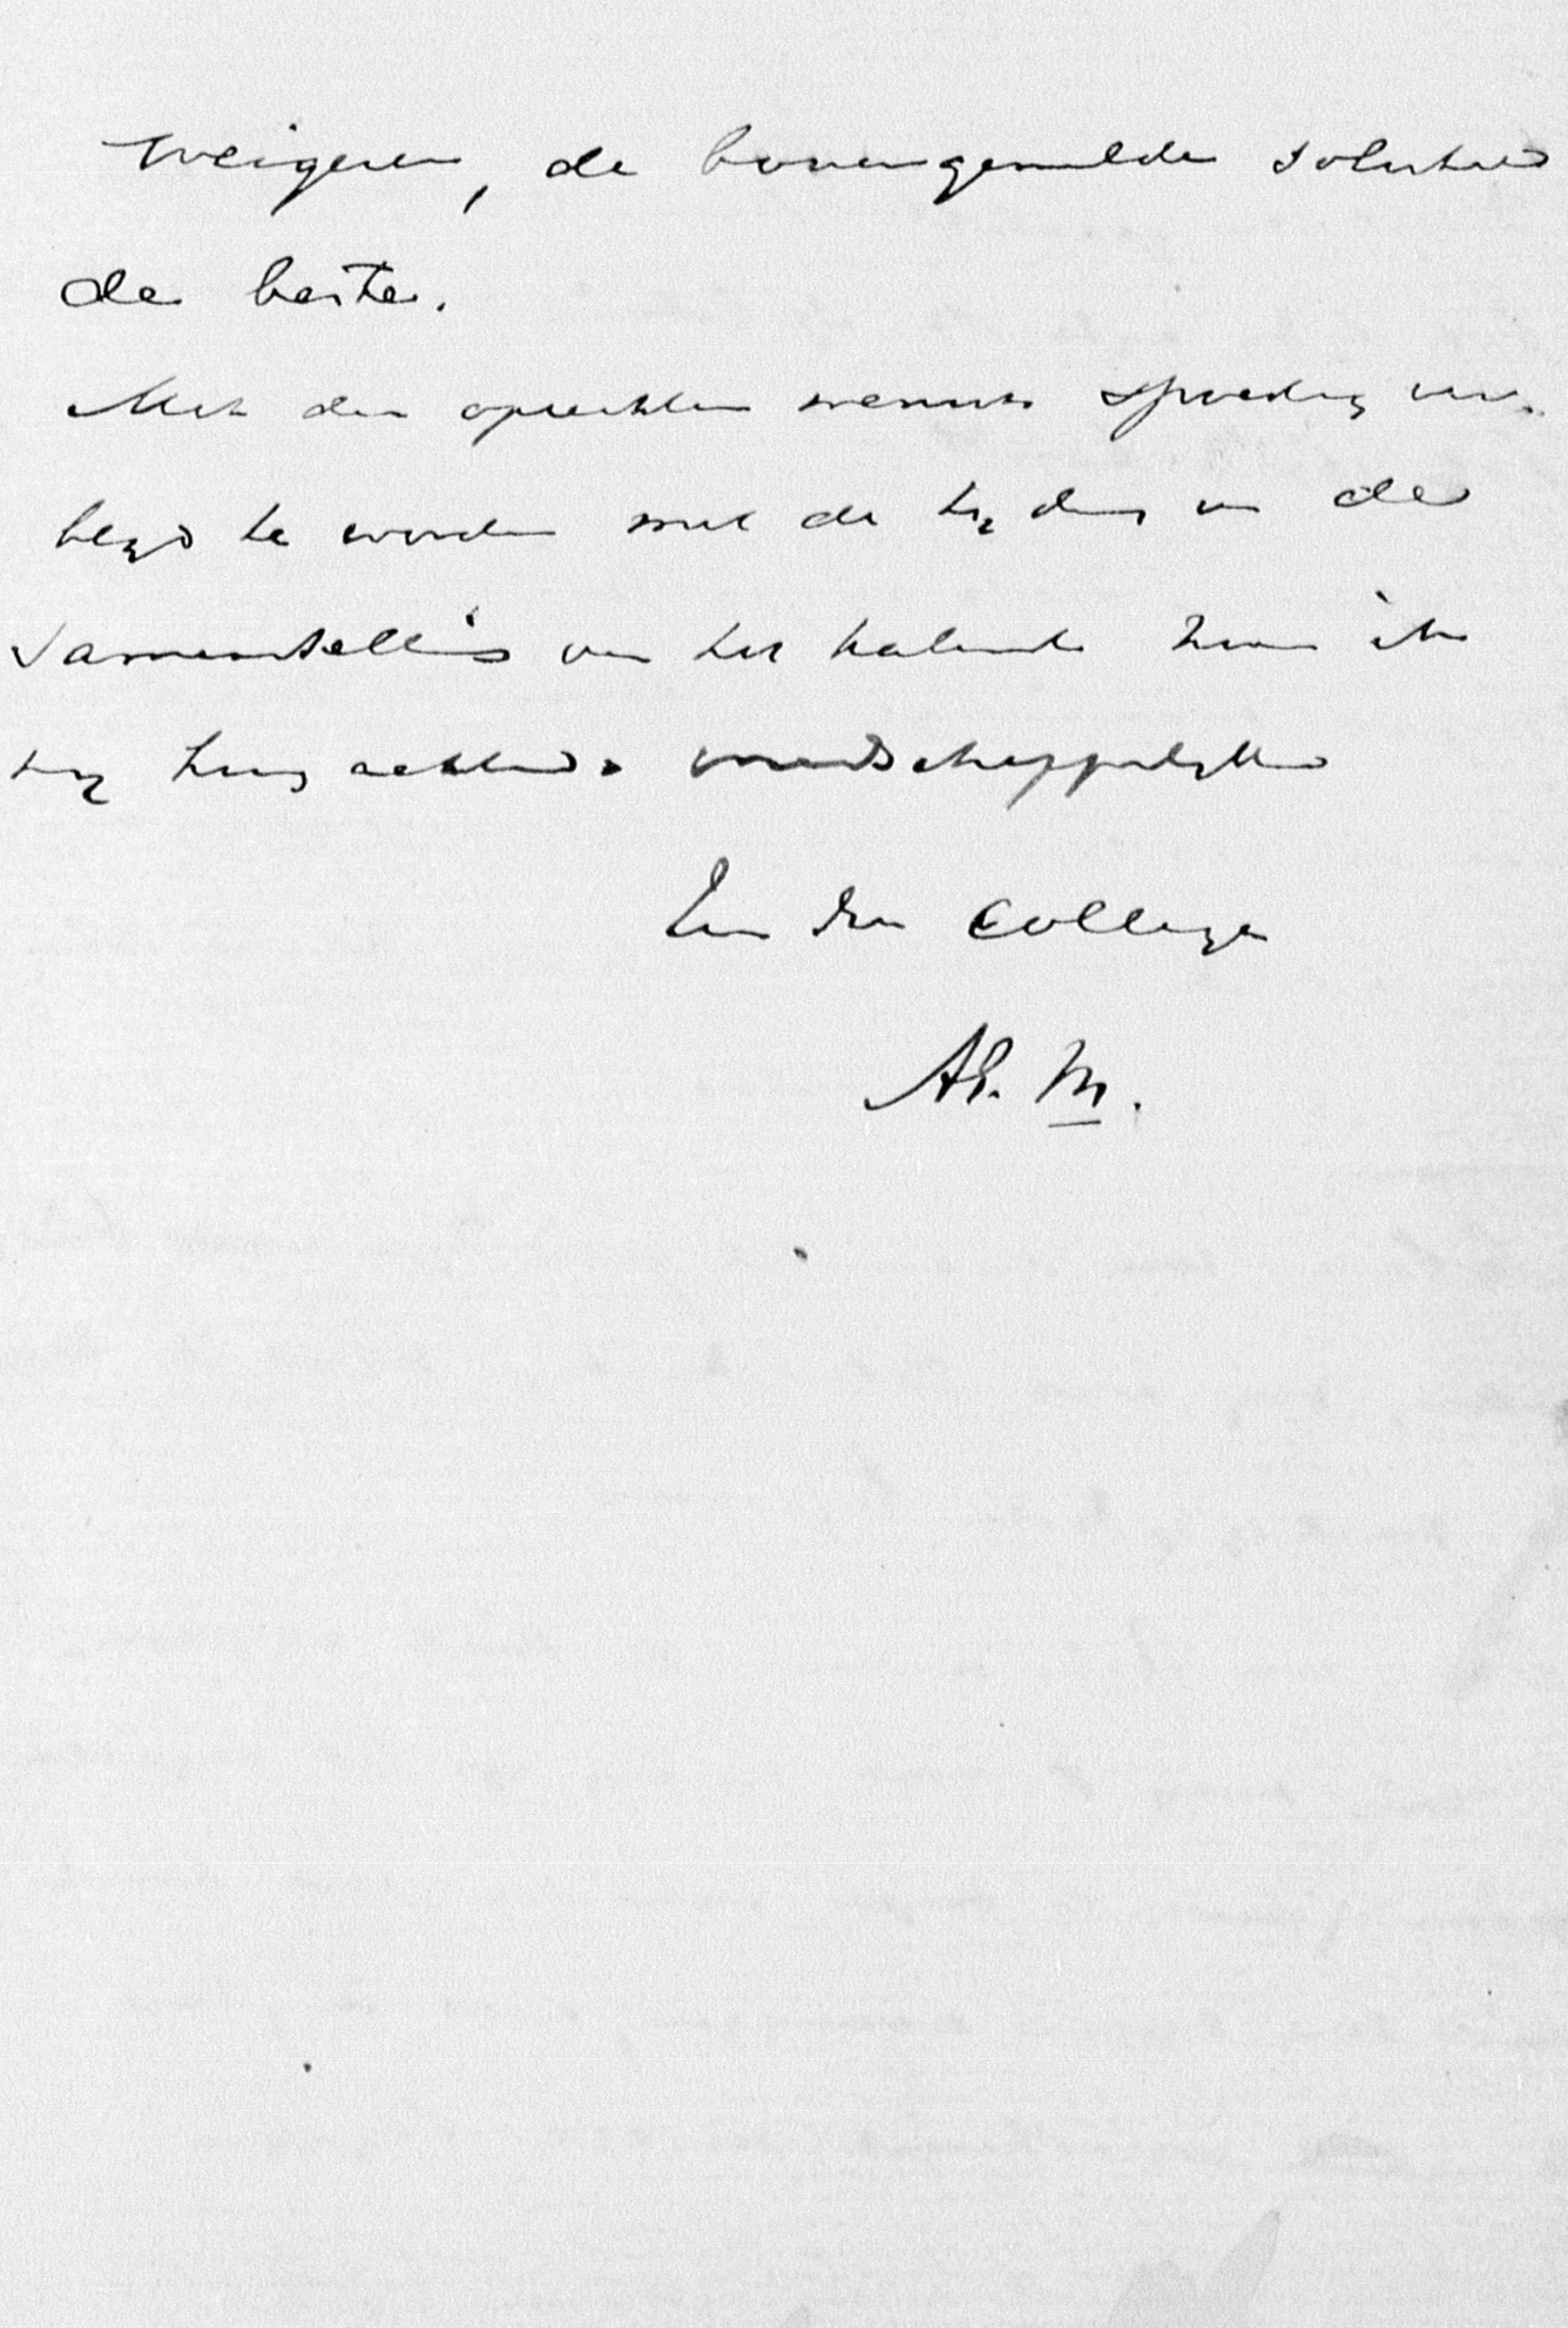 weigeren, de bovengemelde solutie
de beste.
Met den oprechten wensch spoedig ver-
blijd te worden met de tijding van de
samenstelling van het kabinet noem ik
mij hoogachtend & vriendschappelijk
Uw dw collega
Ab. M.